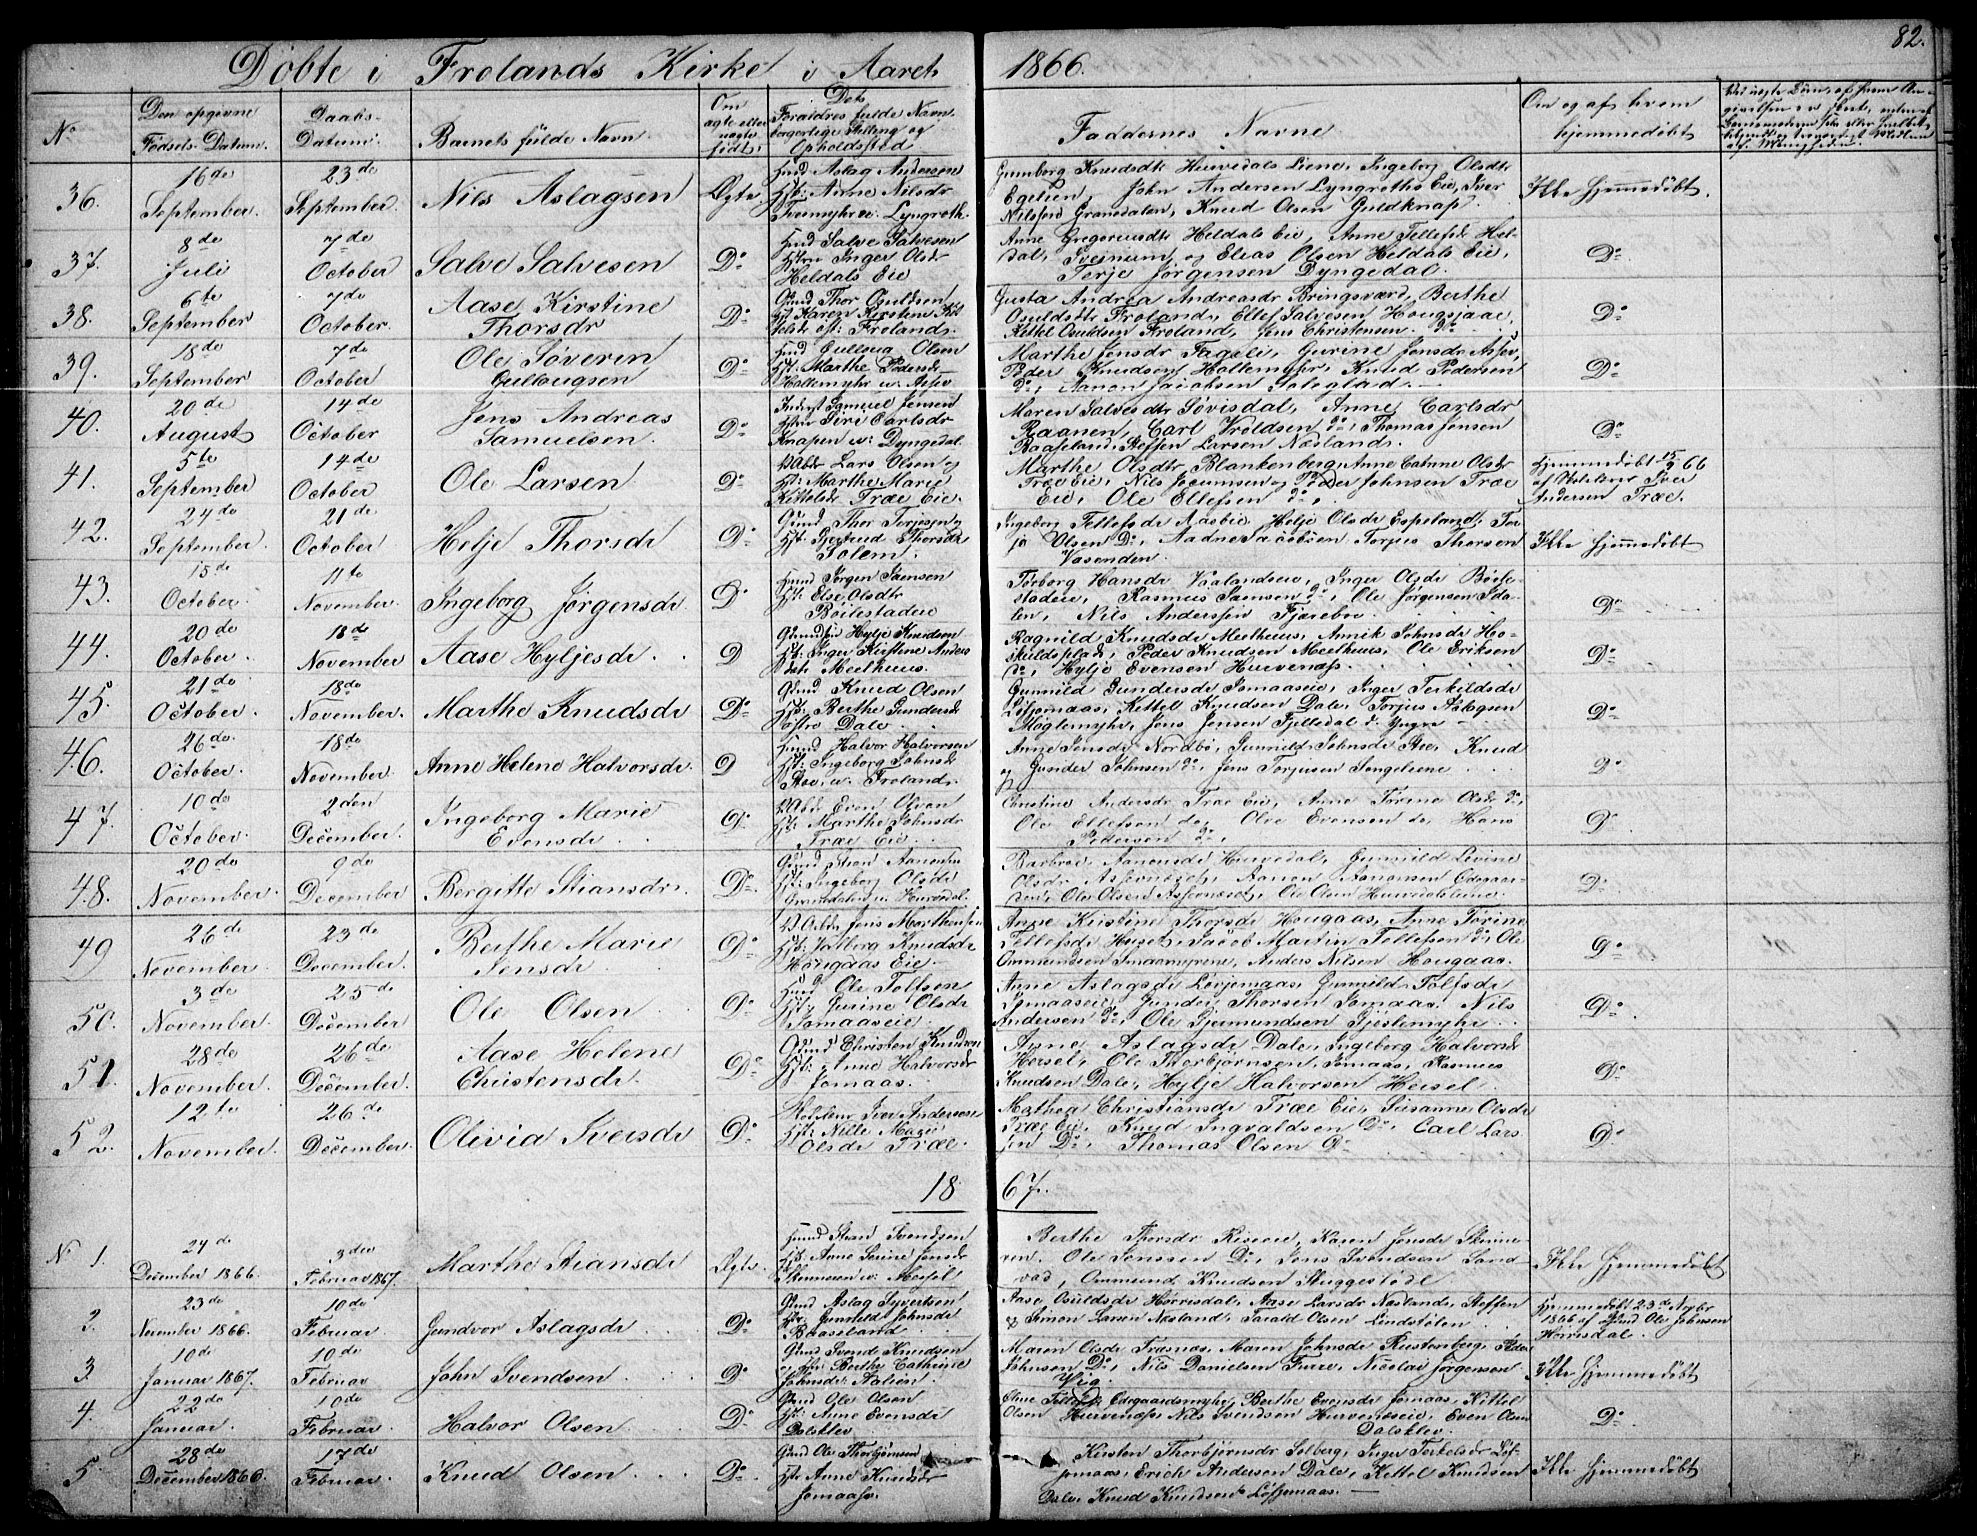 82.
Døbte i Frolands Kirke i Aaret 1866.
No
Den opgivne Fødsels-Datum.
Daabs-Datum.
Barnets fulde Navn.
Om ægte eller uægte født.
Dets Forældres fulde Navn borgerlige Stilling og Opholdssted
Faddernes Navne
Om og af hvem hjemmedøbt
36. 16de September. 23de September. Nils Aslagsen Ægte.
Gmd Aslag Andersen
Hst: Anne Nilsdr
Lyngroth.
Gunnborg Knudsdtr Hurvedals Eiene, Ingeborg Olsdtr
Egelien, John Andersen Lyngroths Eie, Iver
Nilsen Granedalen, Knud Olsen Guldknap.
Ikke Hjemmedøbt.
37. 8de Juli 7de October Salve Salvesen Do
Hmd Salve Salvesen
Hstru Inger Olsdr
Heldals Eie
Anne Gregoriusdtr Heldals Eie, Anne Tellefsdr Hel-
dal, Svejnum, og Elias Olsen Heldals Eie,
Terje Jørgensen Dyngedal.
Do
38. 6te September 7de October. Aase Kirstine Thorsdr Do
Gmd Thor Osuldsen
Hst Karen Kirstine Kit
telsdr Froland.
Gusta Andrea Andreasdr Bringsværd, Berthe
Osuldsdtr Froland, Ellef Salvesen Hougsjaae,
Kittel Osuldsen Froland, Jens Christensen do
Do
39. 18de September 7de October Ole Søveren Gullaugsen Do
Hmd Gullaug Olsen
Hst: Marthe Pedersdr
Holtemyhr
Marthe Jensdr Fageli, Gurine Jensdr
Peder Knudsen Holtemyhr, Knud Pedersen
Do, Aanon Jacobsen
Do
40. 20de August 14de October Jens Andreas Samuelsen. Do
Samuel Jensen
Hstru Siri Carlsdr
Knapen Dyngedal.
Maren Salvesdtr Løvisdal, Anne Carlsdr
Raanen, Carl Vroldsen do, Thomas Jensen
Baaseland, Steffen Larsen Næsland.
Do
41. 5te September 14de October Ole Larsen Do
Lars Olsen og
Hst: Marthe Marie
Kittelsdr Træ Eie.
Marthe Olsdtr Blankenberg, Anne Olsdr
Træ Eie, Nils og Peder Johnsen Træ
Eie, Ole Ellefsen do,
Hjemmedøbt 15/9 66
af Iver
Andersen Træ.
42. 24de September. 21de October. Helje Thorsdr Do
Gmd Thor Terjesen og
Hst. Gjertrud Thorsdtr
Solem.
Ingeborg Tellefsdr Aasbie, Helje Olsdr Espeland, Ter
je Olsen Do, Aadne Jacobsen, Torjus Thorsen
Vasenden.
Ikke Hjemmedøbt
43. 15de October. 11te November. Ingeborg Jørgensdr Do
Hmd Jørgen Jensen
Hst: Else Olsdtr
Bøilestadeie
Tørborg Hansdr Vaalandseie, Inger Olsdr Bøile-
stadeie, Rasmus do, Ole Jørgensen
Nils Andersen Fjærebro
Do
44. 20de October. 18de November Aase Hyljesdr D
Hylje Knudsen
Hst: Inger Kirstine Anders
datr Meelhuus.
Ragnild Knudsdr Meelhuus, Annik Johnsdr Ho-
skuldsplads, Peder Knudsen Meelhuus, Ole Eriksen
do, Hylje Evensen Hurvenæss.
Do
45. 21de October. 18de November. Marthe Knudsdr Do
Gmd Knud Olsen
Hst: Berthe Gundersdr
østre Dale
Gunnild Gundersdr Jomaaseie, Inger Terkildsdr
Løfjomaas, Kittel Knudsen Dale, Torjus Aslagsen
Møglemyhr, Jens Jensen Fjelledal d: Yngre
Do
46. 26de October 18de November. Anne Helene Halvorsdr. D
Hmd Halvor Halvorsen
Hst: Ingeborg Johnsdr
Froland.
Anne Jensdr Nordbø, Gunnild Johnsdr Knud
og Gunder Johnsen do, Jens Torjusen Songeliene
Do
47. 10de October. 2den December. Ingeborg Marie Evensdr Do
Even Olsen
Hst: Marthe Johnsdr
Træ Eie
Christine Andersdr Træ Eie, Anne Tørine Olsdr do,
Ole Ellefsen do, Olve Evensen do, Hans
Pettersen do,
Do
48. 20de November. 9de December Bergitte Stiansdr. Do.
Gmd Stian Aanonsen
Hst: Ingeborg Olsdr
Hurvedal.
Barbroe Aanonsdr Hurvedal, Gunnild Levine
Olsdr Aanon Aanonsen
Ole Olsen Ole Olsen Hurvedalseie
Do
49 26de November. 23de December. Berthe Marie Jensdr Do
Jens Mortensen
Hst: Valborg Knudsdr
Hougaas Eie
Anne Kristine Thorsdr Hougaas, Anne Tørine
Tellefsdr Huset, Jacob Martin Tellefsen do, Ole
Ommundsen Smaamyrene, Anders Nilsen Hougaas.
Do
50. 3de November. 25de December Ole Olsen Do
Hmd Ole Tolfsen
Hst: Gurine Olsdr
Jomaaseie.
Anne Aslagsdr Løvjomaas, Gunnild Tolfsdr
Jomaaseie, Gunder Thorsen Jomaas, Nils
Andersen do, Ole Gjermundsen
Do
51. 28de November. 26de December. Aase Helene Christensdr. Do
Gmd Christen Knudsen
Hst: Anne Halvorsdr
Jomaas.
Anne Aslagsdr Dale, Ingeborg Halvorsdr
Heisel, Ole Thorbjørnsen Jomaas, Rasmus
Knudsen Dale, Hylje Halvorsen Heisel
Do
52. 12te November. 26de December. Olivia Iversdr Do
Iver Andersen
Hst: Nille Marie
Olsdr Træe.
Mathea Christiansdr Træe Eie, Susanne Olsdr
Træ Eie, Knud Ingvaldsen Do, Carl Lars
sen Do, Thomas Olsen Do
Do
1867.
No 1. 24de December 1866. 3die Februar 1867. Marthe Stiansdr Ægte.
Gmd Stian Svendsen
Hst. Anne Serine Jensdr
Berthe Thorsdr Riseeie, Karen Jensdr
Ole Jenssen Do, Jens Svendsen Land
vad, Ommund Knudsen Skuggestøl
Ikke Hjemmedøbt
2. 23de November 1866. 10de Februar. Gundvor Aslagsdr Do
Gmd Aslag Syvertsen
Hst: Gunnild Johnsdr
Baaseland
Aase Osuldsdr Hørrisdal, Aase Larsdr Næsland, Steffen
og Simon Larsen Næsland, Tarald Olsen Lindstølen
Hjemmedøbt 23de Novbr
1866 af Gmd Ole Johnsen
Hørrisdal.
3 10de Januar 1867. 10de Februar John Svendsen D
Gmd Svend Knudsen
og Hst: Berthe Cathrine
Johnsdr
Maren Olsdr Trasnæs, Maren Johnsdr Rustenberg, Peder
Johnsen Do, Nils Danielsen Furre, Nicolai Jørgensen
Vig.
Ikke Hjemmedøbt
4. 22de Januar. 10de Februar Halvor Olsen Do
Gmd Ole Olsen
Hst: Anne Evensdr
Dalsklev
Oline Tellefsdr Odegaardsmyhr, Berthe Evensdr Jomaas, Kittel
Olsen Hurvenæs, Nils Svendsen Hurvenæseie, Even Olsen
Dalsklev.
Do
5. 28de December 1866. 17de Februar Knud Olsen Do
Gmd Ole Thorbjørnsen
Hst: Anne Knudsdr
Jomaas.
Kirsten Thorbjørnsdr Solberg, Inger Terkelsdr Løf-
jomaas, Erich Andersen Dale, Kittel Knudsen
Dale, Knud Knudsen Løfjomaas.
Ikke Hjemmedøbt